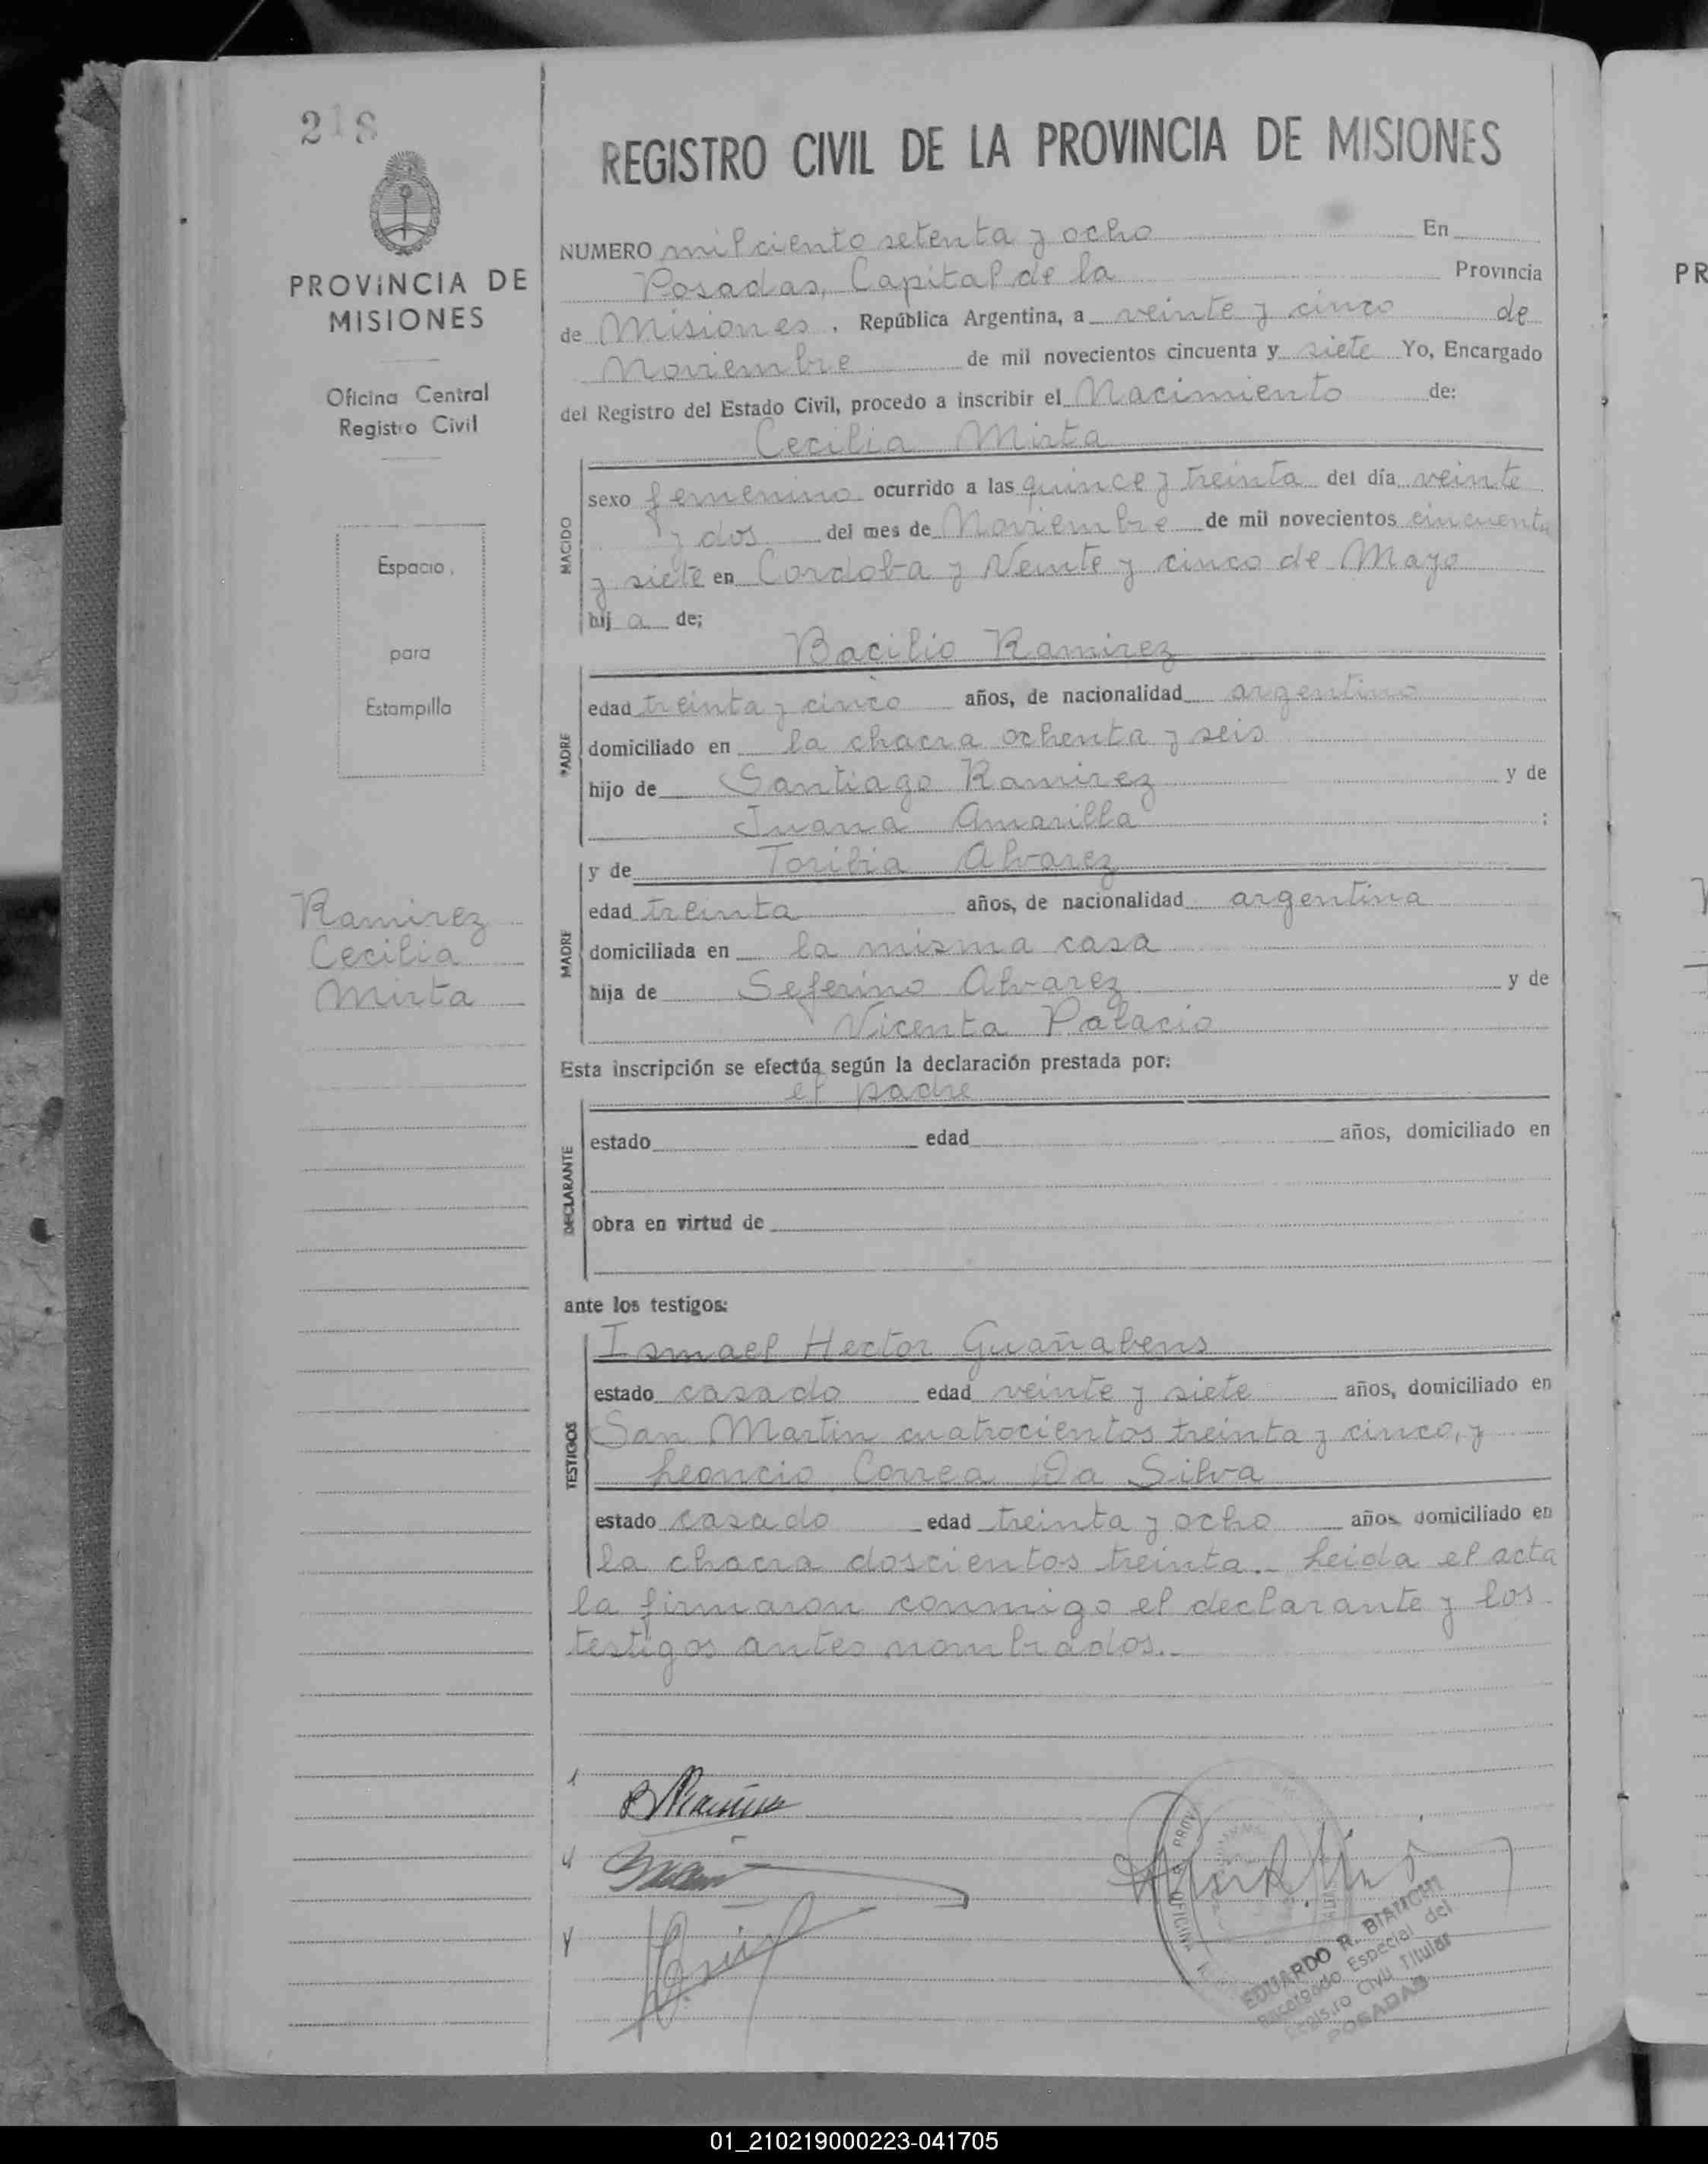 218
PROVINCIA DE
MISIONES
Oficina Central
Registro Civil
Espacio
para
Estampilla
Ramirez
Cecilia
Mirta
REGISTRO CIVIL DE LA PROVINCIA DE MISIONES
NUMERO mil ciento setenta y ocho En
Posadas, Capital de la Provincia
de Misiones, República Argentina, a veinte y cinco de
Noviembre de mil novecientos cincuenta y siete Yo, Encargado
del Registro del Estado Civil, procedo a inscribir el Nacimiento de:
Cecilia Mirta
NACIDO
sexo femenino ocurrido a las quince y treinta del día veinte
y dos del mes de Noviembre de mil novecientos cincuenta
y siete en Cordoba y Veinte y cinco de Mayo
hij a de;
Bacilio Ramirez
PADRE
edad treinta y cinco años, de nacionalidad argentino
domiciliado en la chacra ochenta y seis
hijo de Santiago Ramirez y de
Juana Amarilla ;
y de Toribia Alvarez
MADRE
edad treinta años, de nacionalidad argentina
domiciliada en la misma casa
hija de Seferino Alvarez y de
Vicenta Palacio
Esta inscripción se efectúa según la declaración prestada por:
el padre
DECLARANTE
estado edad años, domiciliado en
obra en virtud de
ante los testigos:
Ismael Hector Guañabens
TESTIGOS
estado casado edad veinte y siete años, domiciliado en
San Martin cuatrocientos treinta y cinco, y
Leoncio Correa Da Silva
estado casado edad treinta y ocho años domiciliado en
la chacra doscientos treinta.- Leida el acta
la firmaron conmigo el declarante y los
testigos antes nombrados.-
B Ramirez
EDUARDO R. BIANCHI
Encargado Especial del
Registro Civil Titular
POSADAS
PR
01_210219000223-041705